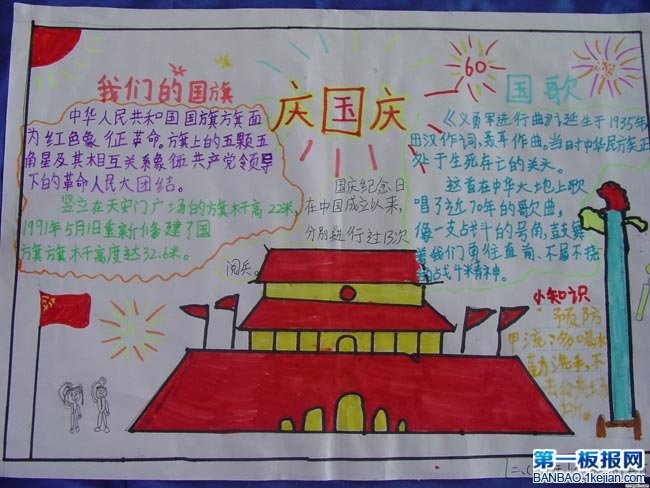 我们的国旗
中华人民共和国国旗旗面
为红色象征革命。旗上的五颗五
角星及其相互关系象征共产党领导
下的革命人民大团结。
竖立在天安门广场的旗杆高22米,
1991年5月1日重新修建了国
旗旗杆高度达32.6米。
庆国庆
60
国庆纪念日
在中国成立以来,
分别进行过13次
阅兵。
国歌
《义勇军进行曲》诞生于1935年
田汉作词,聂耳作曲。当日中华民族正
处于生死存亡的关头。
这首在中华大地上歌
唱了近70年的歌曲,
像一支战斗的号角,鼓舞
着我们勇往直前、不屈不挠
的战斗精神。
小知识
预防
甲流:多喝水
勤洗手,不
去公共场
所。
第一板报网
BANBAO.1kejian.com